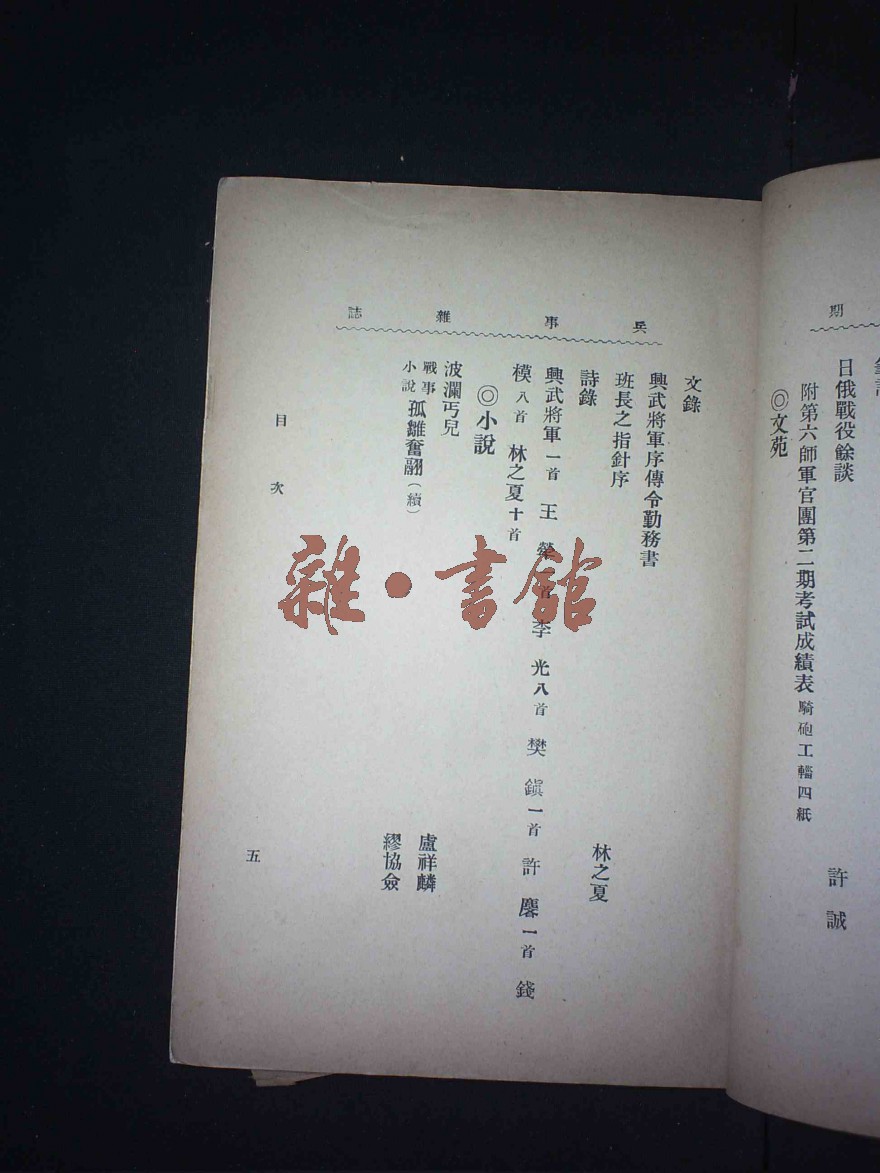 期
日俄戰役餘談 許誠
附第六師軍官團第二期考試成績表 騎砲工輜四紙
◎文苑
兵事雜誌
文錄
興武將軍序傳令勤務書
班長之指針序 林之夏
詩錄
興武將軍一首 王 首 李光八首 樊鎭一首 許麐一首 錢
模八首 林之夏十首
◎小說
波瀾丐兒 盧祥麟
戰事小說 孤雛奮翮(續) 繆協僉
目次
五
雜·書館